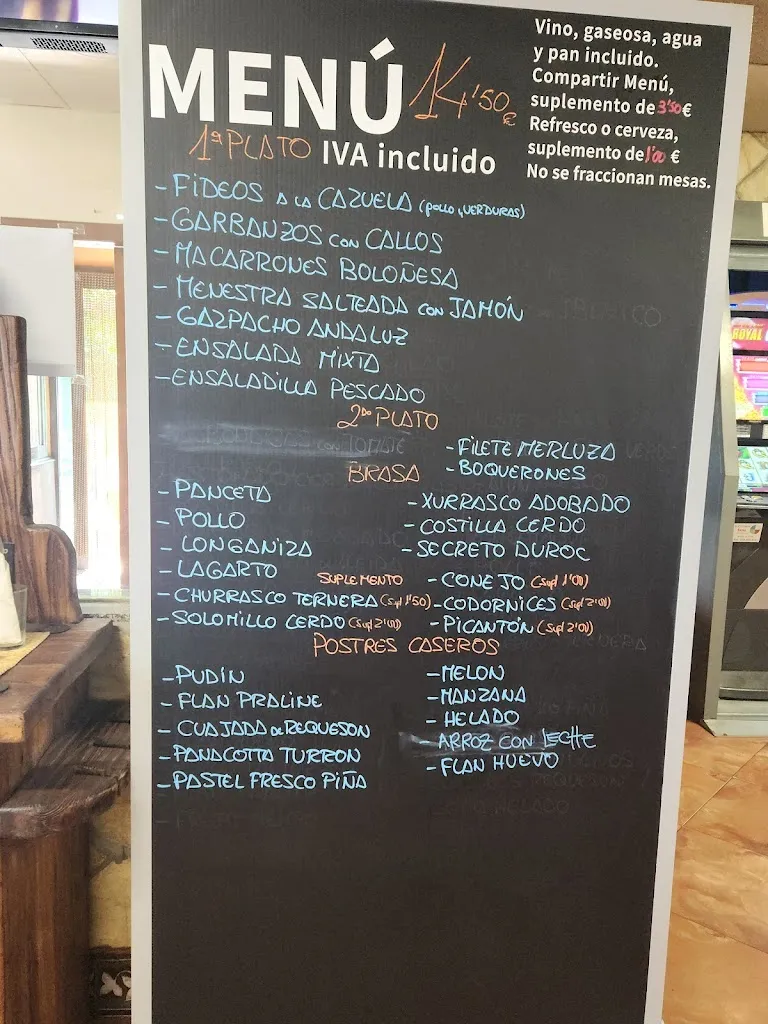 MENÚ 14'50€
Vino, gaseosa, agua
y pan incluido.
Compartir Menú,
suplemento de 3'50€
Refresco o cerveza,
suplemento de 1'00 €
No se fraccionan mesas.
1º PLATO IVA incluido
- FIDEOS A LA CAZUELA (POLLO y VERDURAS)
- GARBANZOS CON CALLOS
- MACARRONES BOLOÑESA
- MENESTRA SALTEADA CON JAMÓN
- GAZPACHO ANDALUZ
- ENSALADA MIXTA
- ENSALADILLA PESCADO
2DO PLATO
- FILETE MERLUZA
- BOQUERONES
BRASA
- PANCETA
- POLLO
- LONGANIZA
- LAGARTO
- XURRASCO ADOBADO
- COSTILLA CERDO
- SECRETO DUROC
SUPLEMENTO
- CHURRASCO TERNERA (Supl 1'50)
- SOLOMILLO CERDO (Supl 2'00)
- CONEJO (Supl 1'00)
- CODORNICES (Supl 2'00)
- PICANTÓN (Supl 2'00)
POSTRES CASEROS
- PUDIN
- FLAN PRALINE
- CUAJADA DE REQUESON
- PANACOTTA TURRON
- PASTEL FRESCO PIÑA
- MELON
- MANZANA
- HELADO
- ARROZ CON LECHE
- FLAN HUEVO
ROYAL